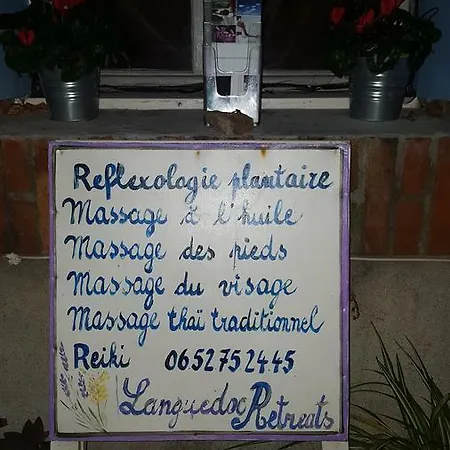 Reflexologie plantaire
Massage à l'huile
Massage des pieds
Massage du visage
Massage thaï traditionnel
Reiki 06.52.75.24.45
Languedoc Retreats